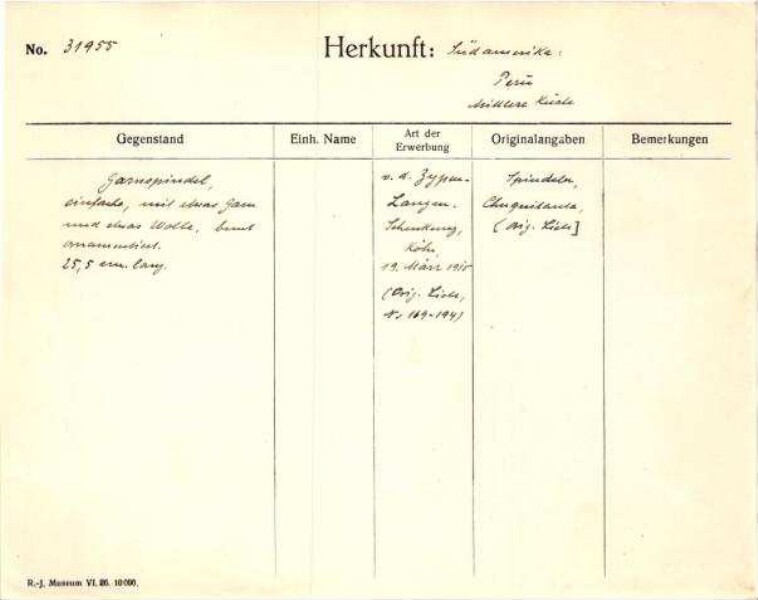 No. 31955
Herkunft: Südamerika:
Perú
Mittlere Küste
Gegenstand
Einh. Name
Art der Erwerbung
Originalangaben
Bemerkungen
Garnspindel,
einfache, mit etwas Garn
und etwas Wolle, bunt
ornamentiert.
25,5 cm. lang.
v. d. Zypen-
Langen-
Schenkung,
Köln,
19. März
(Orig. Liste,
Nr 169-194)
Spindeln,
Chuquitanta,
(Orig. Liste]
R.-J. Museum VI. 26. 10000.